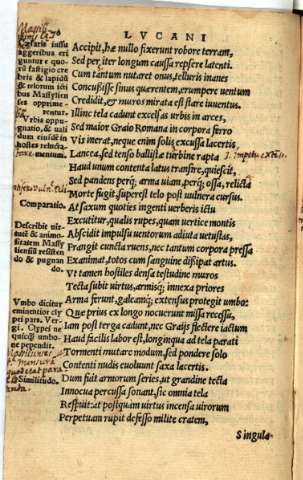 LVCANI
Accipit, hæ nullo fixerunt robore terram,
Sed per iter longum caussa repsere latenti.
Cum tantum nutaret onus, telluris inanes
Concußisse sinus quærentem, erumpere uentum
Credidit, & muros mirata est stare iuuentus.
Illinc tela cadunt excelsas urbis in arces.
Sed maior Graio Romana in corpora ferro
Vis inerat, neque enim solis excussa lacertis
Lancea, sed tenso ballistæ turbine rapta
Haud unum contenta latus transire, quiescit,
Sed pandens perq; arma uiam, perq; ossa, relicta
Morte fugit, superest telo post uulnera cursus.
At saxum quoties ingenti uerberis ictu
Excutitur, qualis rupes, quam uertice montis
Abscidit impulsu uentorum adiuta uetustas,
Frangit cuncta ruens, nec tantum corpora pressa
Exanimat, totos cum sanguine dißipat artus.
Vt tamen hostiles densa testudine muros
Tecta subit uirtus, armisq; innexa priores
Arma ferunt, galeamq; extensus protegit umbo:
Quæ prius ex longo nocuerunt missa recessu,
Iam post terga cadunt, nec Graijs flectere iactum
Haud facilis labor est, longinqua ad tela parati
Tormenti mutare modum, sed pondere solo
Contenti nudis euoluunt saxa lacertis.
Dum fuit armorum series, ut grandine tecta
Innocua percussa sonant, sic omnia tela
Respuit: at postquam uirtus incensa uirorum
Perpetuam rupit defesso milite cratem,
Singula
Cæsaris iussu
aggeribus eri
guntur e quo
rũ fastigio cre
bris & lapiõ
& telorum icti
bus Massylien
ses opprime-
rentur.
Vrbis oppu-
gnatio, & uali
da eiusdem in
hostes
mentum.
Comparatio.
Describit uir-
tutē & animo-
sitatem Massy
liensiũ resistēn
do & pugnan
do.
Vmbo dicitur
eminentior cly
pei pars. Ver-
gi. Clypei ne
quicq; umbo-
ne pependit.
Similitudo.